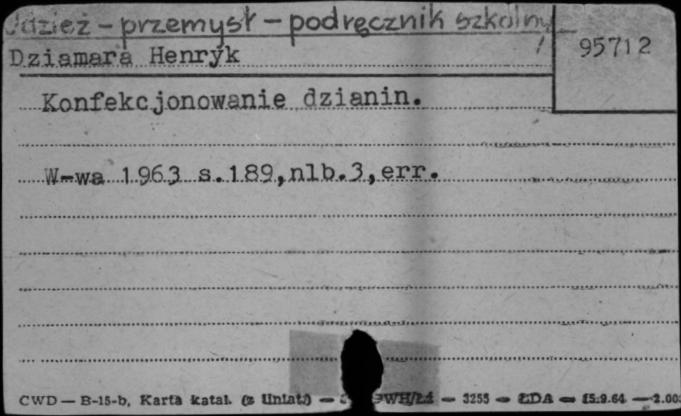 Odzież - przemysł - podręcznik szkolny
95712
Dziamara Henryk
Konfekcjonowanie dzianin.
W-wa 1963 s.189,nlb.3,err.
CWD — B-15-b, Karta katal. (z liniat.) — 3255 — ŁDA — 15.9.64 — 2.00